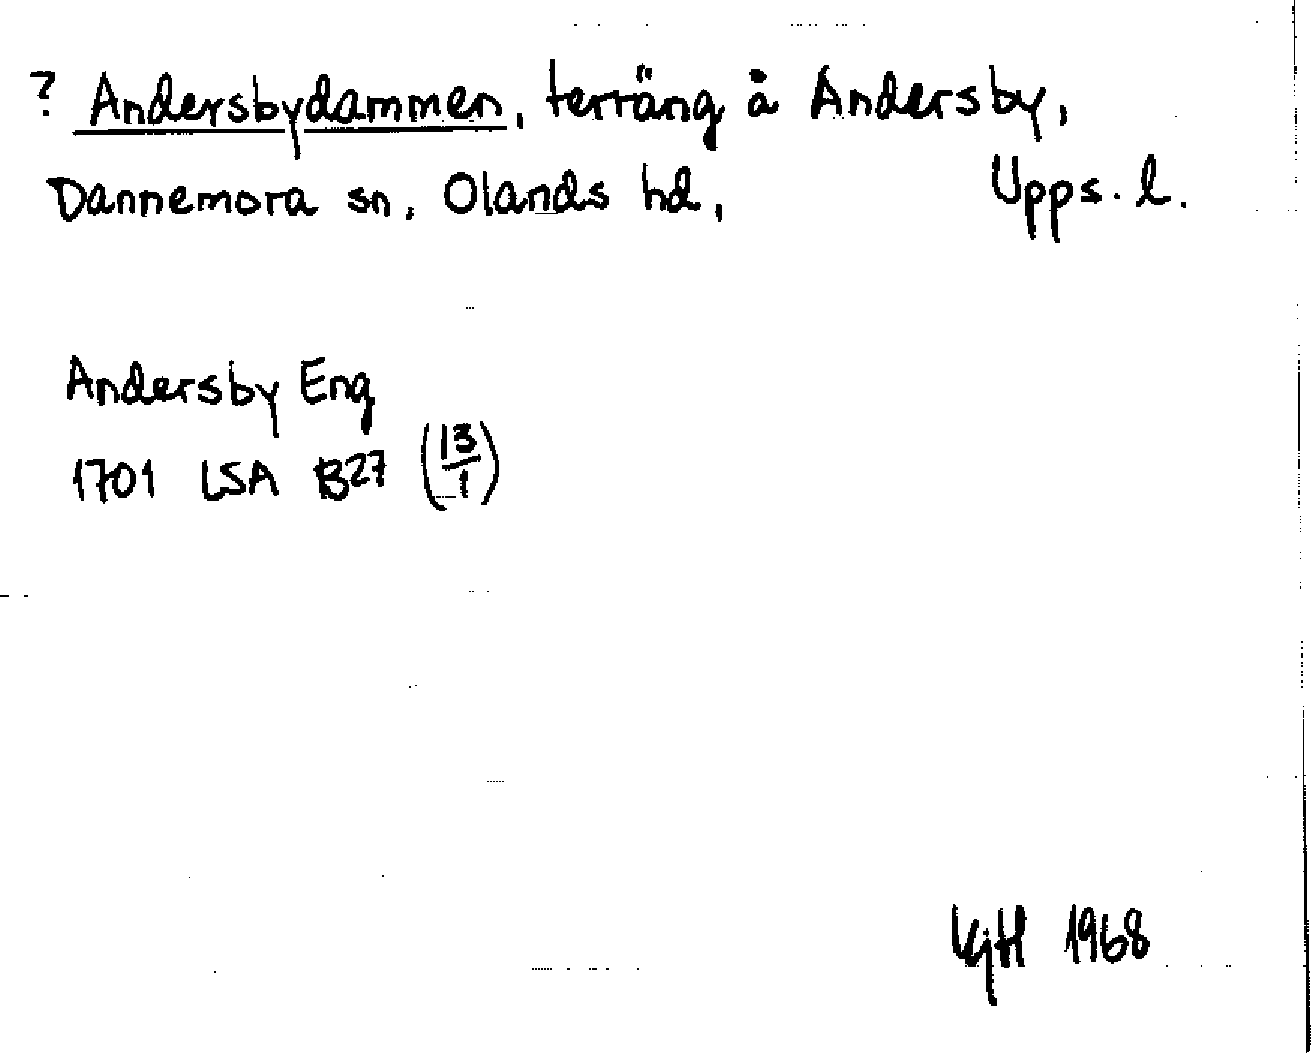 ? Andersbydammen, terräng å Andersby,
Dannemora sn, Olands hd, Upps. l.
Andersby Eng
1701 LSA B27 (13/1)
1968